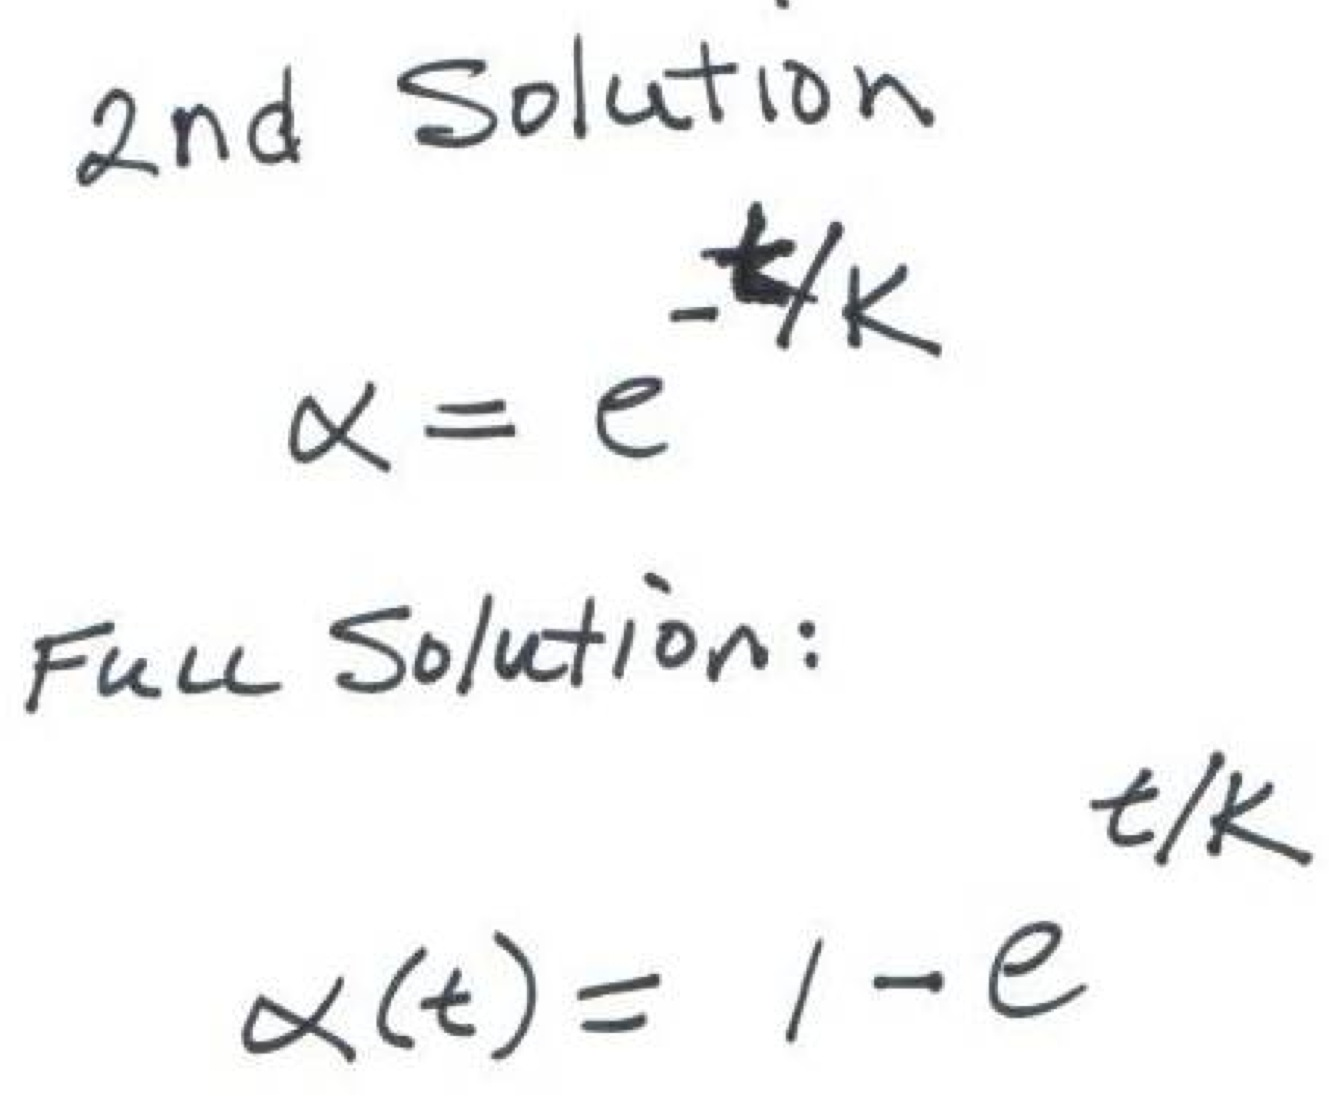 2nd Solution
α = e^{-t/K}
Full Solution:
α(t) = 1 - e^{t/K}